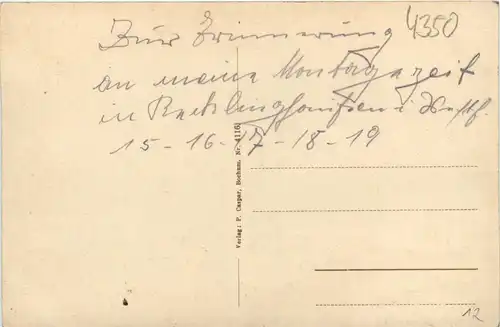 4350
Zur Erinnerung
an meine Montagezeit
in Recklinghausen i. Westf.
15 - 16 - 17 - 18 - 19
Verlag: P. Caspar, Bochum. Nr. 4116
12